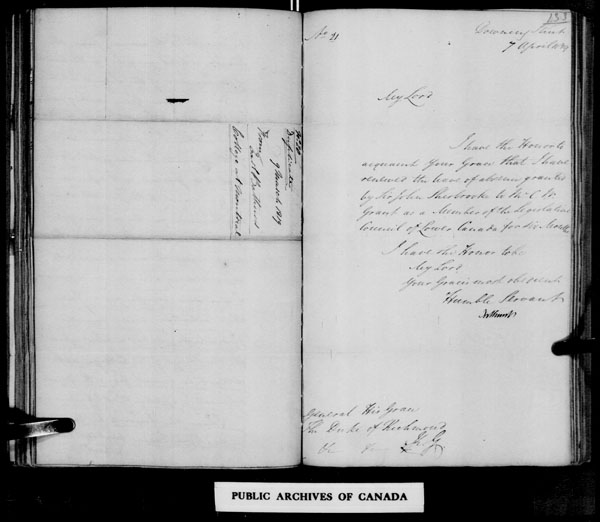 No 20
Duplicate
9 March 1819
From
Earl Bathurst
College at Montreal
133
No 21
Downing Street
7 April 1819
My Lord
I have the Honor to
acquaint Your Grace that I have
received the leave of absence granted
by Sir John Sherbrooke to Mr C W
Grant as a Member of the Legislative
Council of Lower Canada for six Months
I have the Honor to be
My Lord
Your Grace's most obedient
Humble Servant
Bathurst
General His Grace
The Duke of Richmond
K. G.
PUBLIC ARCHIVES OF CANADA